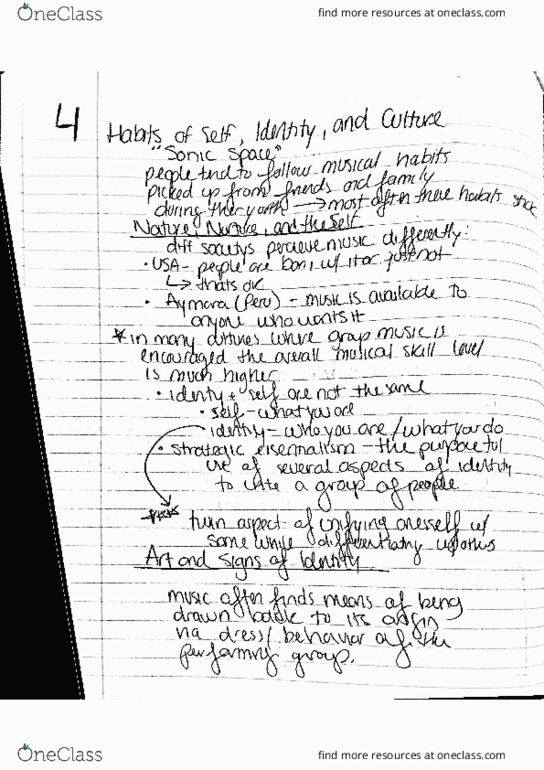 OneClass
find more resources at oneclass.com
4
Habits of Self, Identity, and Culture
"Sonic Space"
people tend to follow musical habits
picked up from friends and family
during their youth → most often these habits stick
Nature, Nurture, and the Self
diff societys percieve music differently:
• USA - people are born w/ it or just not
↳ thats ok
• Aymara (Peru) - music is available to
anyone who wants it
* in many cultures where group music is
encouraged the overall musical skill level
is much higher
• identity + self are not the same
• self - what you are
identity - who you are / what you do
• strategic - the purposeful
use of several aspects of identity
to unite a group of people
twin aspect of unifying oneself w/
some while differentiating w/ others
Art and Signs of Identity
music often finds means of being
drawn back to its origin
via dress/ behavior of the
performing group.
OneClass
find more resources at oneclass.com